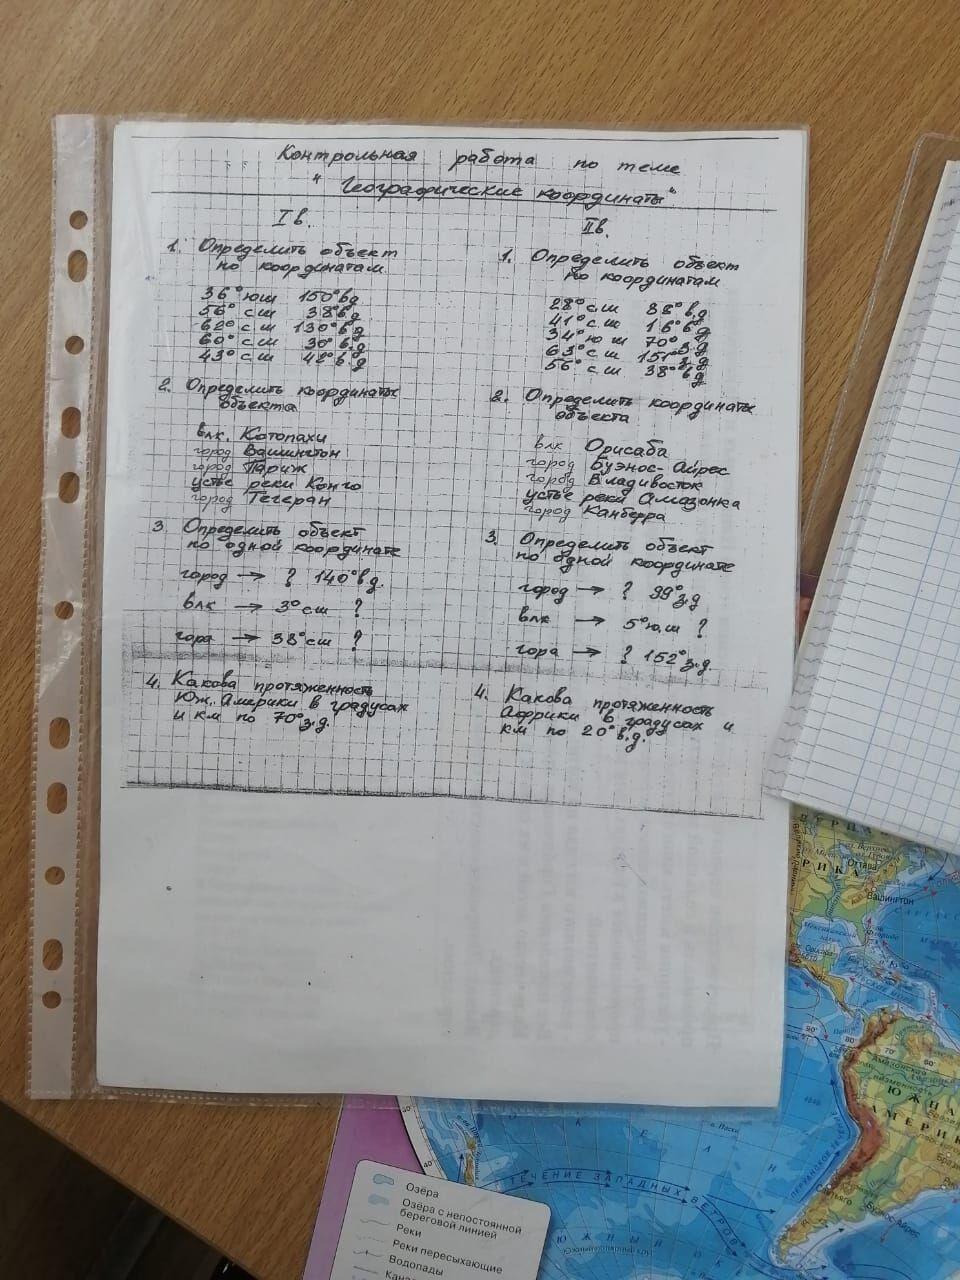 Контрольная работа по теме
"Географические координаты"
I в.
1. Определить объект
по координатам
36° юш 150° вд
56° с ш 38° вд
62° с ш 130° в.д
60° с ш 30° в.д
43° с ш 42° в.д
2. Определить координаты
объекта
влк. Котопахи
город Вашингтон
город Париж
устье реки Конго
город Тегеран
3. Определить объект
по одной координате
город → ? 140° в.д.
влк → 3° сш ?
гора → 38° сш ?
4. Какова протяженность
Юж. Америки в градусах
и км по 70° з.д.
II в.
1. Определить объект
по координатам
28° с.ш 88° в.д
41° с.ш 16° в.д
34° ю ш 70° з.д
63° с.ш 151° з.д
56° с.ш 38° в.д
2. Определить координаты
объекта
влк Орисаба
город Буэнос-Айрес
город Владивосток
устье реки Амазонка
город Канберра
3. Определить объект
по одной координате
город → ? 99° з.д
влк → 5° ю.ш ?
гора → ? 152° з.д.
4. Какова протяженность
Африки в градусах и
км по 20° в.д.
РИКА
Оттава
Вашингтон
Мексиканский
залив
90°
80°
70°
60°
Амазонская
ЮЖНАЯ
АМЕРИК
Буэнос-Айрес
ПЕРУАНСКОЕ ТЕЧЕНИЕ
о. Пасхи
ТЕЧЕНИЕ ЗАПАДНЫХ ВЕТРОВ
ЮЖНЫЙ О
Южный полярный круг
40°
Озёра
Озёра с непостоянной
береговой линией
Реки
Реки пересыхающие
Водопады